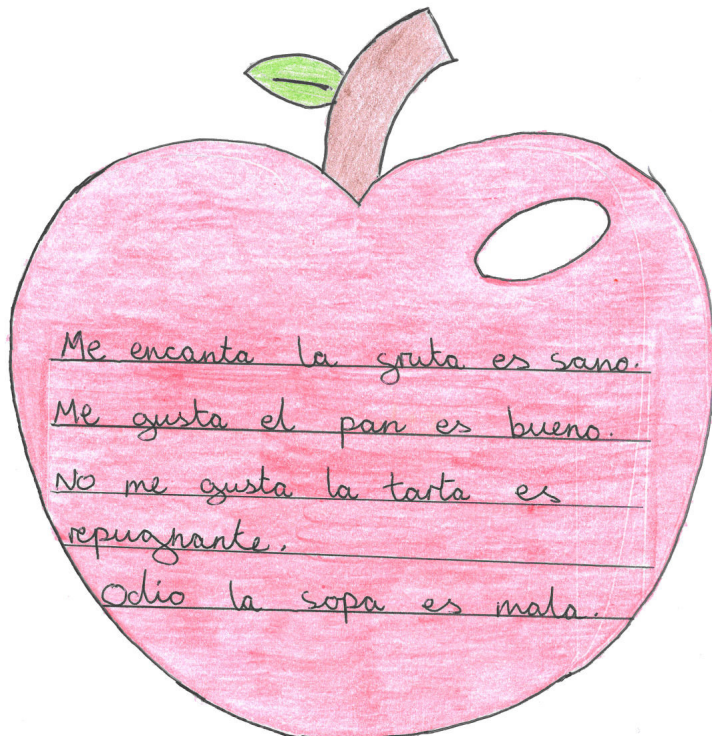 Me encanta la gruta es sano.
Me gusta el pan es bueno.
No me gusta la tarta es
repugnante.
Odio la sopa es mala.